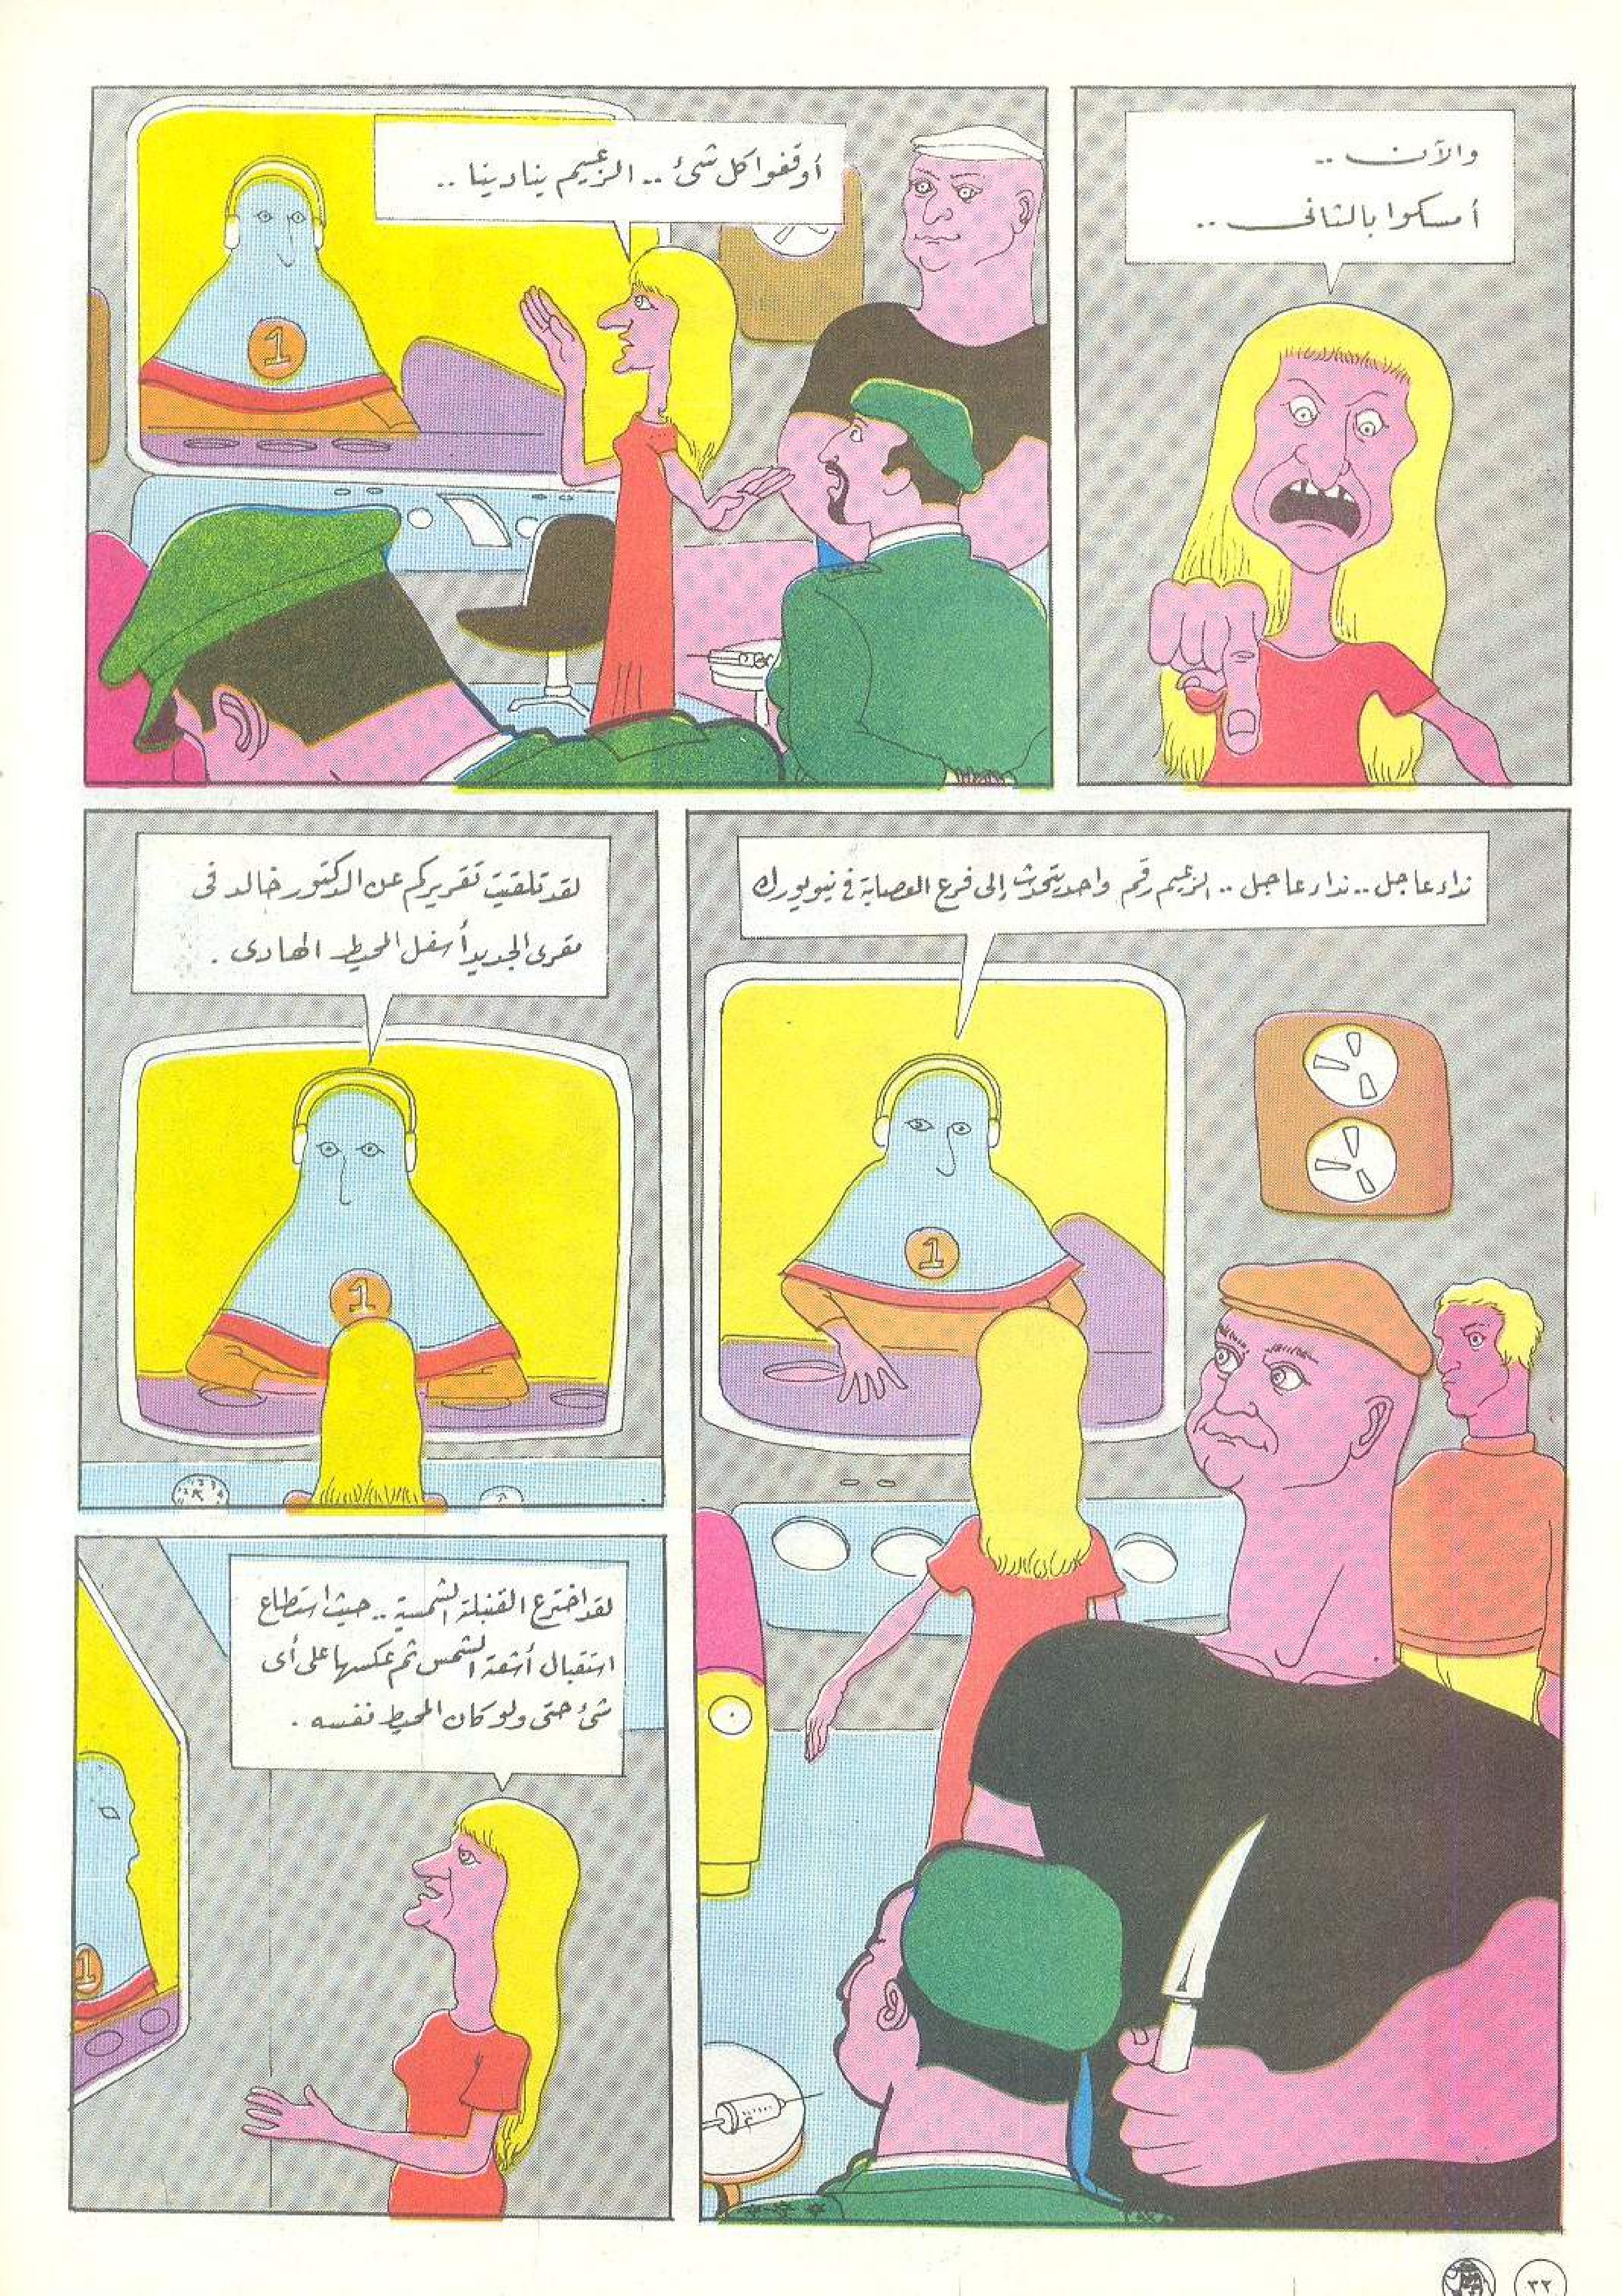 والآن ..
أمسكوا بالثانى ..
أوقفوا كل شئ .. الزعيم ينادينا ..
1
نداء عاجل .. نداء عاجل .. الزعيم رقم واحد يتحدث إلى فرع العصابة فى نيويورك
1
لقد تلقيت تقريركم عن الدكتور خالد فى
مقرى الجديد أسفل المحيط الهادى .
1
لقد اخترع القنبلة الشمسية .. حيث استطاع
استقبال أشعة الشمس ثم عكسها على أى
شئ حتى ولو كان المحيط نفسه .
1
٣٢